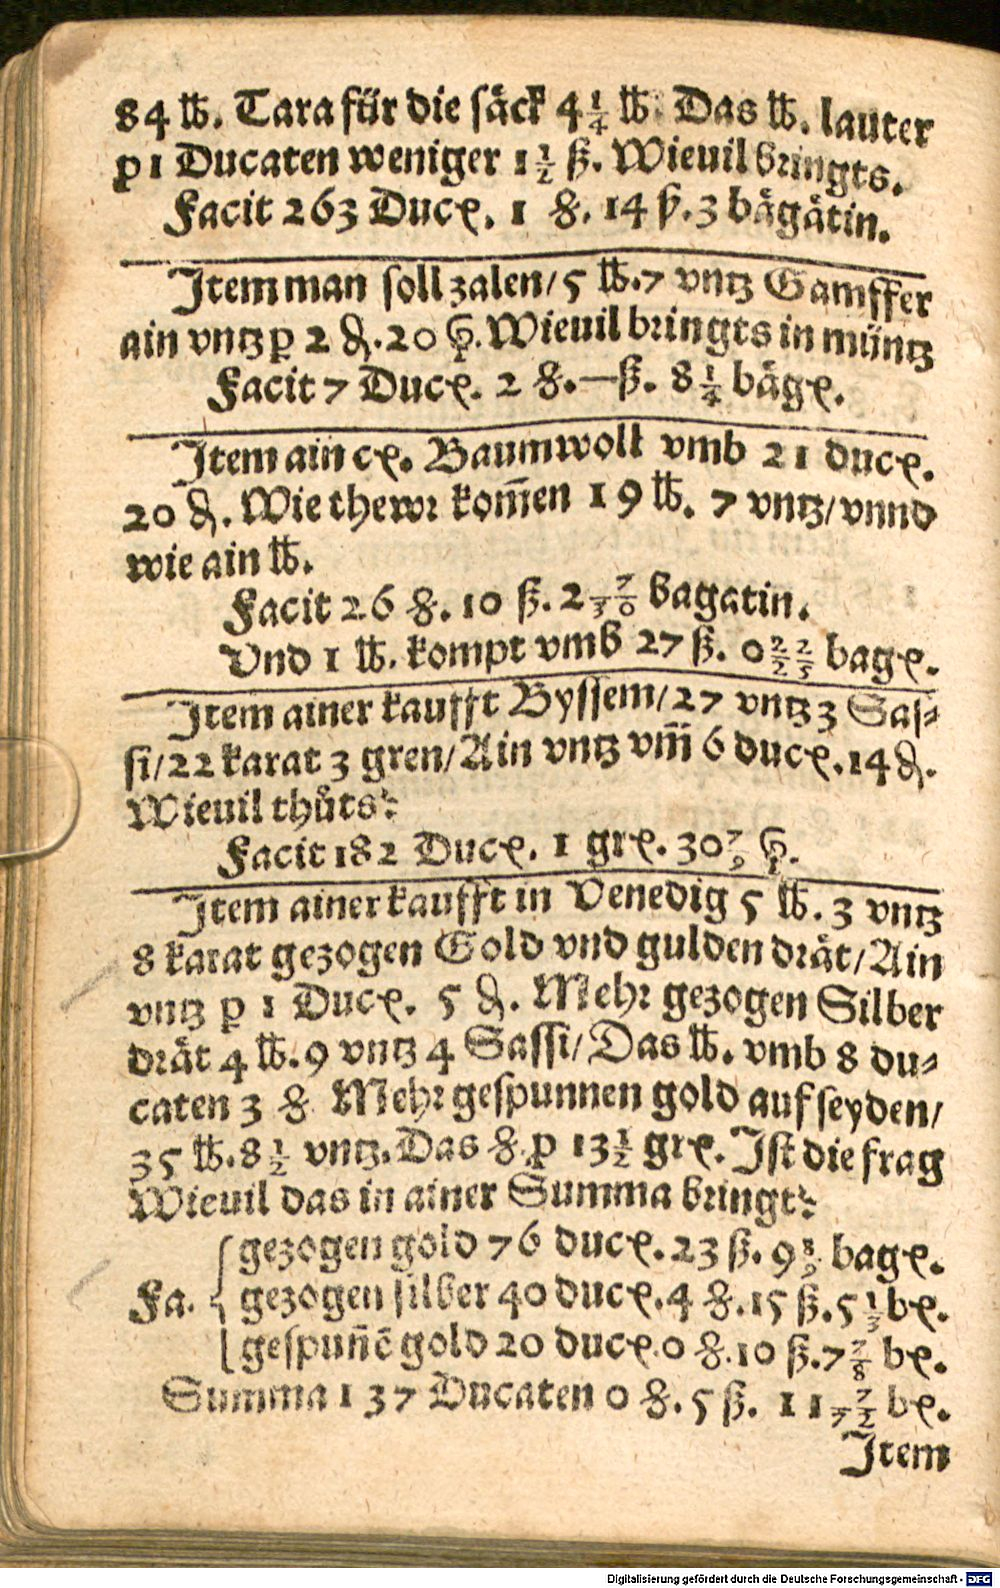 84 ℔. Tara für die säck 4 1/4 ℔. Das ℔. lauter
ꝑ 1 Ducaten weniger 1 1/2 ß. Wieuil bringts.
Facit 263 Ducꝭ. 1 ₰. 14 ß. 3 bägätin.
Item man soll zalen/ 5 ℔. 7 vntz Gamffer
ain vntz ꝑ 2 ₰. 20 ꝑ. Wieuil bringts in müntz
Facit 7 Ducꝭ. 2 ₰. — ß. 8 1/4 bägꝭ.
Item ain cꝭ. Baumwoll vmb 21 ducꝭ.
20 ₰. Wie thewr kom̄en 19 ℔. 7 vntz/ vnnd
wie ain ℔.
Facit 26 ₰. 10 ß. 2 7/30 bagatin.
Vnd 1 ℔. kompt vmb 27 ß. 0 22/25 bagꝭ.
Item ainer kaufft Byssem/ 27 vntz 3 Sas⸗
si/ 22 karat 3 gren/ Ain vntz vm̄ 6 ducꝭ. 14 ₰.
Wieuil thůts?
Facit 182 Ducꝭ. 1 grꝭ. 30 7/9 ꝑ.
Item ainer kaufft in Venedig 5 ℔. 3 vntz
8 karat gezogen Gold vnd gulden drät/ Ain
vntz ꝑ 1 Ducꝭ. 5 ₰. Mehr gezogen Silber
drät 4 ℔. 9 vntz 4 Sassi/ Das ℔. vmb 8 du⸗
caten 3 ₰ Mehr gespunnen gold auf seyden/
35 ℔. 8 1/2 vntz. Das ₰ ꝑ 13 1/2 grꝭ. Ist die frag
Wieuil das in ainer Summa bringt?
gezogen gold 76 ducꝭ. 23 ß. 9 8/9 bagꝭ.
Fa. gezogen silber 40 ducꝭ. 4 ₰. 15 ß. 5 1/3 bꝭ.
gespun̄ē gold 20 ducꝭ. 0 ₰. 10 ß. 7 7/8 bꝭ.
Summa 137 Ducaten 0 ₰. 5 ß. 11 7/72 bꝭ.
Item
Digitalisierung gefördert durch die Deutsche Forschungsgemeinschaft - DFG